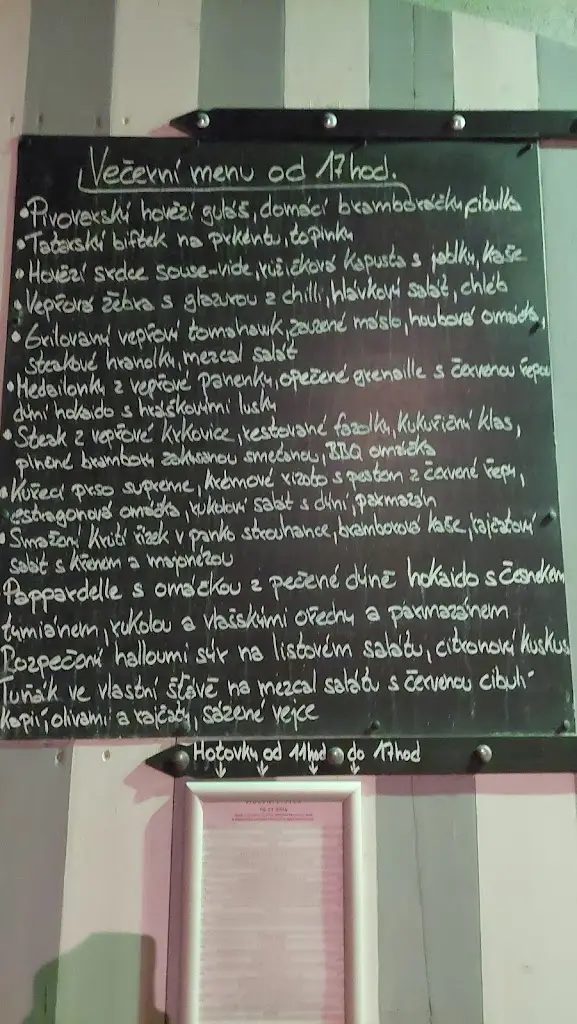 Večerní menu od 17hod.
•Pivovarský hovězí guláš, domácí bramboráčky, cibulka
•Tatarský biftek na prkénku, topinky
•Hovězí srdce souse-vide, růžičková kapusta s jablky, kaše
•Vepřová žebra s glazurou z chilli, hlávkový salát, chléb
•Grilovaný vepřový tomahawk, zauzené máslo, houbová omáčka,
steakové hranolky, mezcal salát
•Medailonky z vepřové panenky, opečené grenaille s červenou řepou
dýní hokaido s hráškovými lusky
•Steak z vepřové krkovice, restované fazolky, kukuřičný klas,
plněné brambory zakysanou smetanou, BBQ omáčka
•Kuřecí prso supreme, krémové rizoto s pestem z červené řepy,
estragonová omáčka, rukolový salát s dýní, parmazán
•Smažený krůtí řízek v panko strouhance, bramborová kaše, rajčatový
salát s křenem a majonézou
Pappardelle s omáčkou z pečené dýně hokaido s česnekem
tymiánem, rukolou a vlašskými ořechy a parmazánem
Rozpečený halloumi sýr na listovém salátu, citronový kuskus
Tuňák ve vlastní šťávě na mezcal salátu s červenou cibulí
kapií, olivami a rajčaty, sázené vejce
Hotovky od 11hod do 17hod